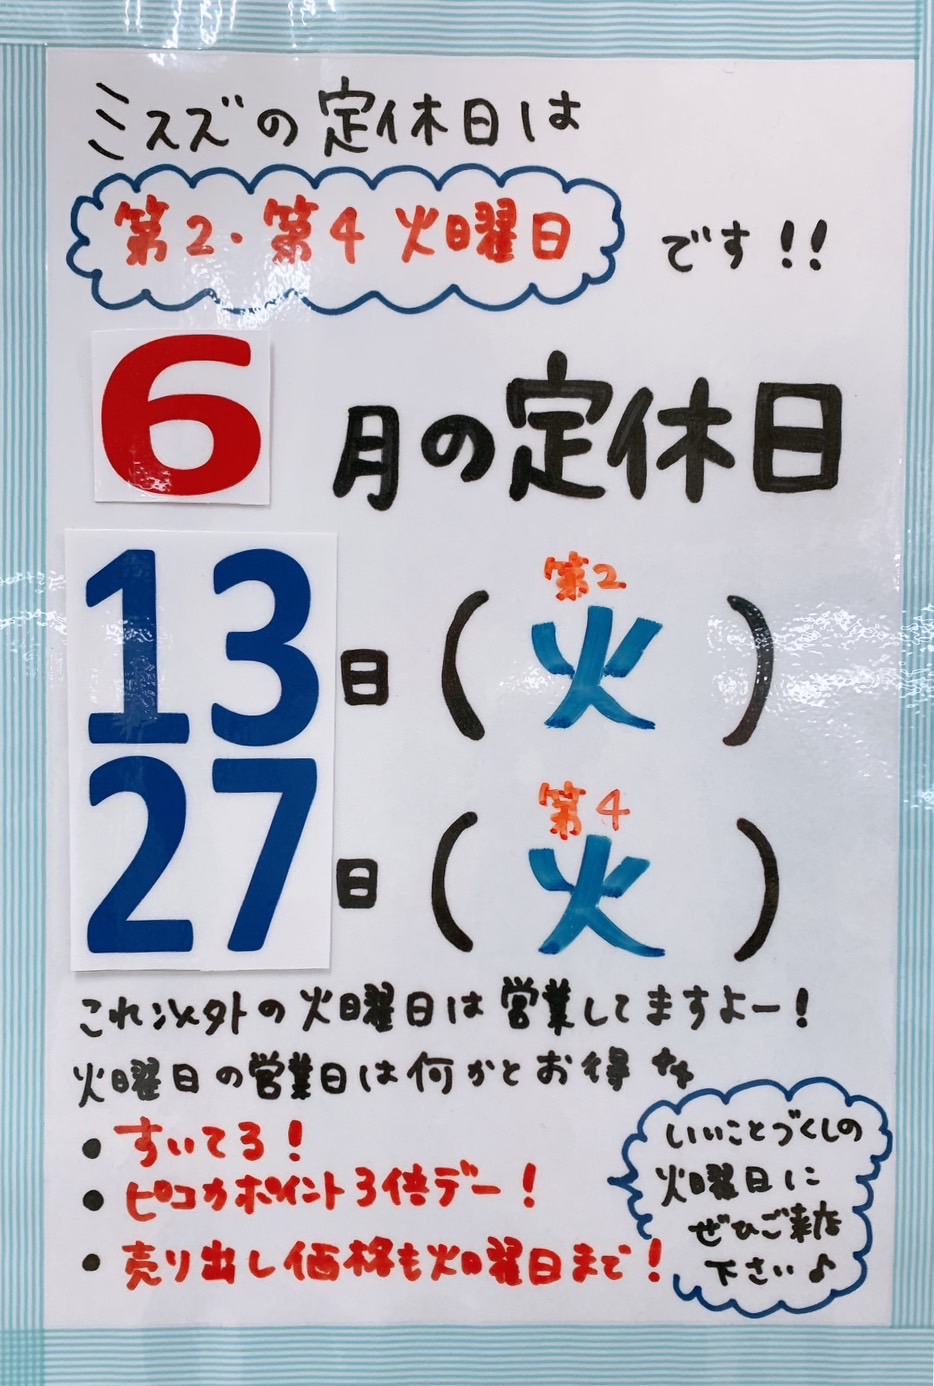 ミスズの定休日は
第2・第4 火曜日 です!!
6月の定休日
第2
13日(火)
第4
27日(火)
これ以外の火曜日は営業してますよー!
火曜日の営業日は何かとお得
・すいてる!
・ピコカポイント3倍デー!
・売り出し価格も火曜日まで!
いいことづくしの
火曜日に
ぜひご来店
下さい♪